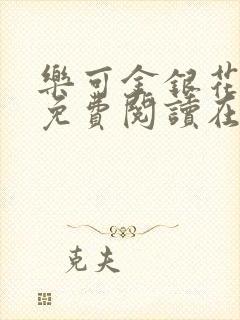 樂可金銀花
免費閱讀在
克夫